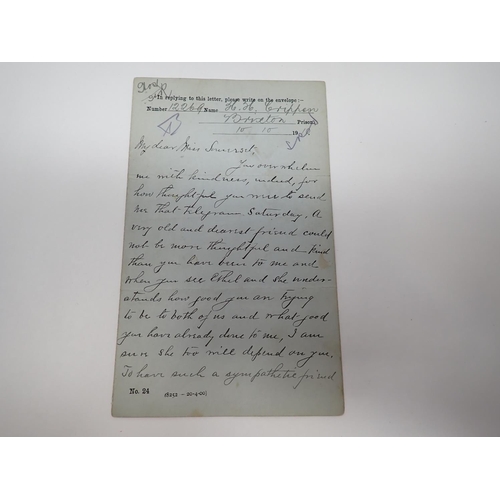 In replying to this letter, please write on the envelope:—
Number 12269 Name H. H. Crippen
Brixton Prison
10 . 10 19
My dear Miss Somerset,
You overwhelm
me with kindness, indeed, for
how thoughtful you were to send
me that telegram Saturday. A
very old and dearest friend could
not be more thoughtful and kind
than you have been to me and
when you see Ethel and she under-
stands how good you are trying
to be to both of us and what good
you have already done to me, I am
sure she too will depend on you.
To have such a sympathetic friend
No. 24